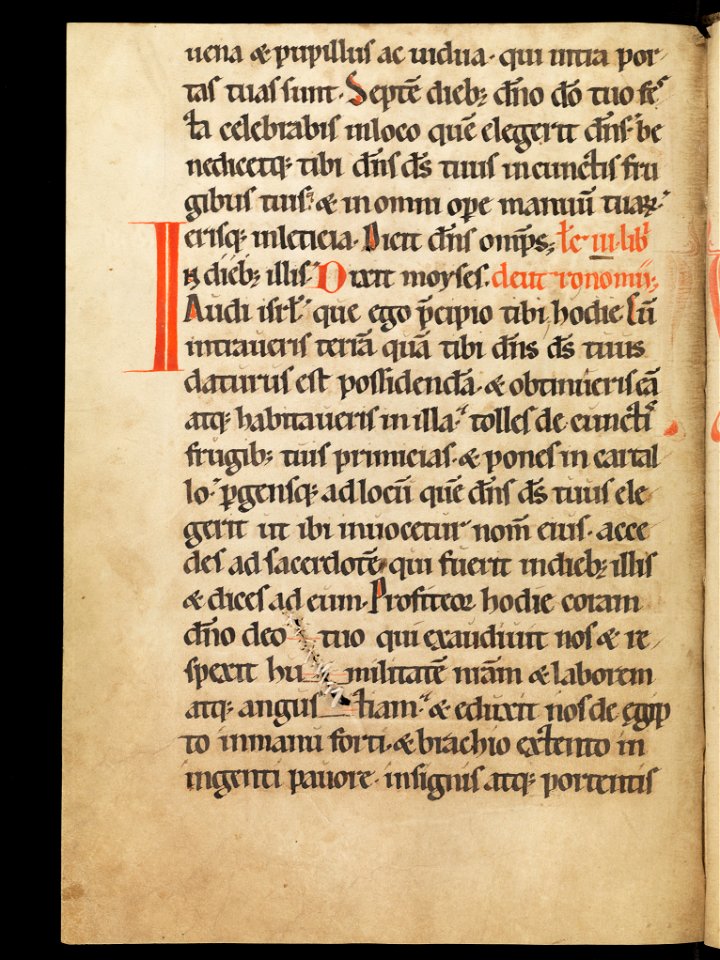 uena & pupillus ac uidua. qui intra por-
tas tuas sunt. Septē dieb; dño dō tuo fes
ta celebrabis inloco quē elegerit dñs. be
nedicetq; tibi dñs ds̄ tuus incunctis fru
gibus tuis. & inomni ope manuū tuaꝝ.
erisq; inleticia. Dicit dñs omps; Lc̄ iii. lib̄
In dieb; illis. Dixit moyses. deut ronomii;
Audi isrl̄. que ego p̄cipio tibi hodie. Cū
intraueris terrā quā tibi dñs ds̄ tuus
daturus est possidendā. & obtinueris eā
atq; habitaueris in illa. tolles de cunctis
frugib; tuis primicias. & pones in cartal
lo. p̱gensq; ad locū quē dñs ds̄ tuus ele
gerit ut ibi inuocetur nom̄ eius. acce
des ad sacerdotē qui fuerit indieb; illis
& dices ad eum. Profiteor hodie coram
dño deo tuo qui exaudiuit nos & re-
spexit hu militatē nr̄am & laborem
atq; angus tiam. & eduxit nos de egip
to inmanu forti. & brachio extento in
ingenti pauore. insignis atq; portentis